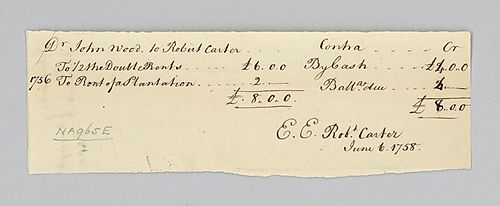 Dr John Wood to Robert Carter .... Contra .... Cr
To 1/2 the Double Rents .... £6.0.0 By Cash .... £4.0.0
1756 To Rent of a Plantation .... 2 .— Balla. due .. 4.—
£8.0.0. £8.0.0
E. E. Robt. Carter
June 6. 1758.
NA965E
2